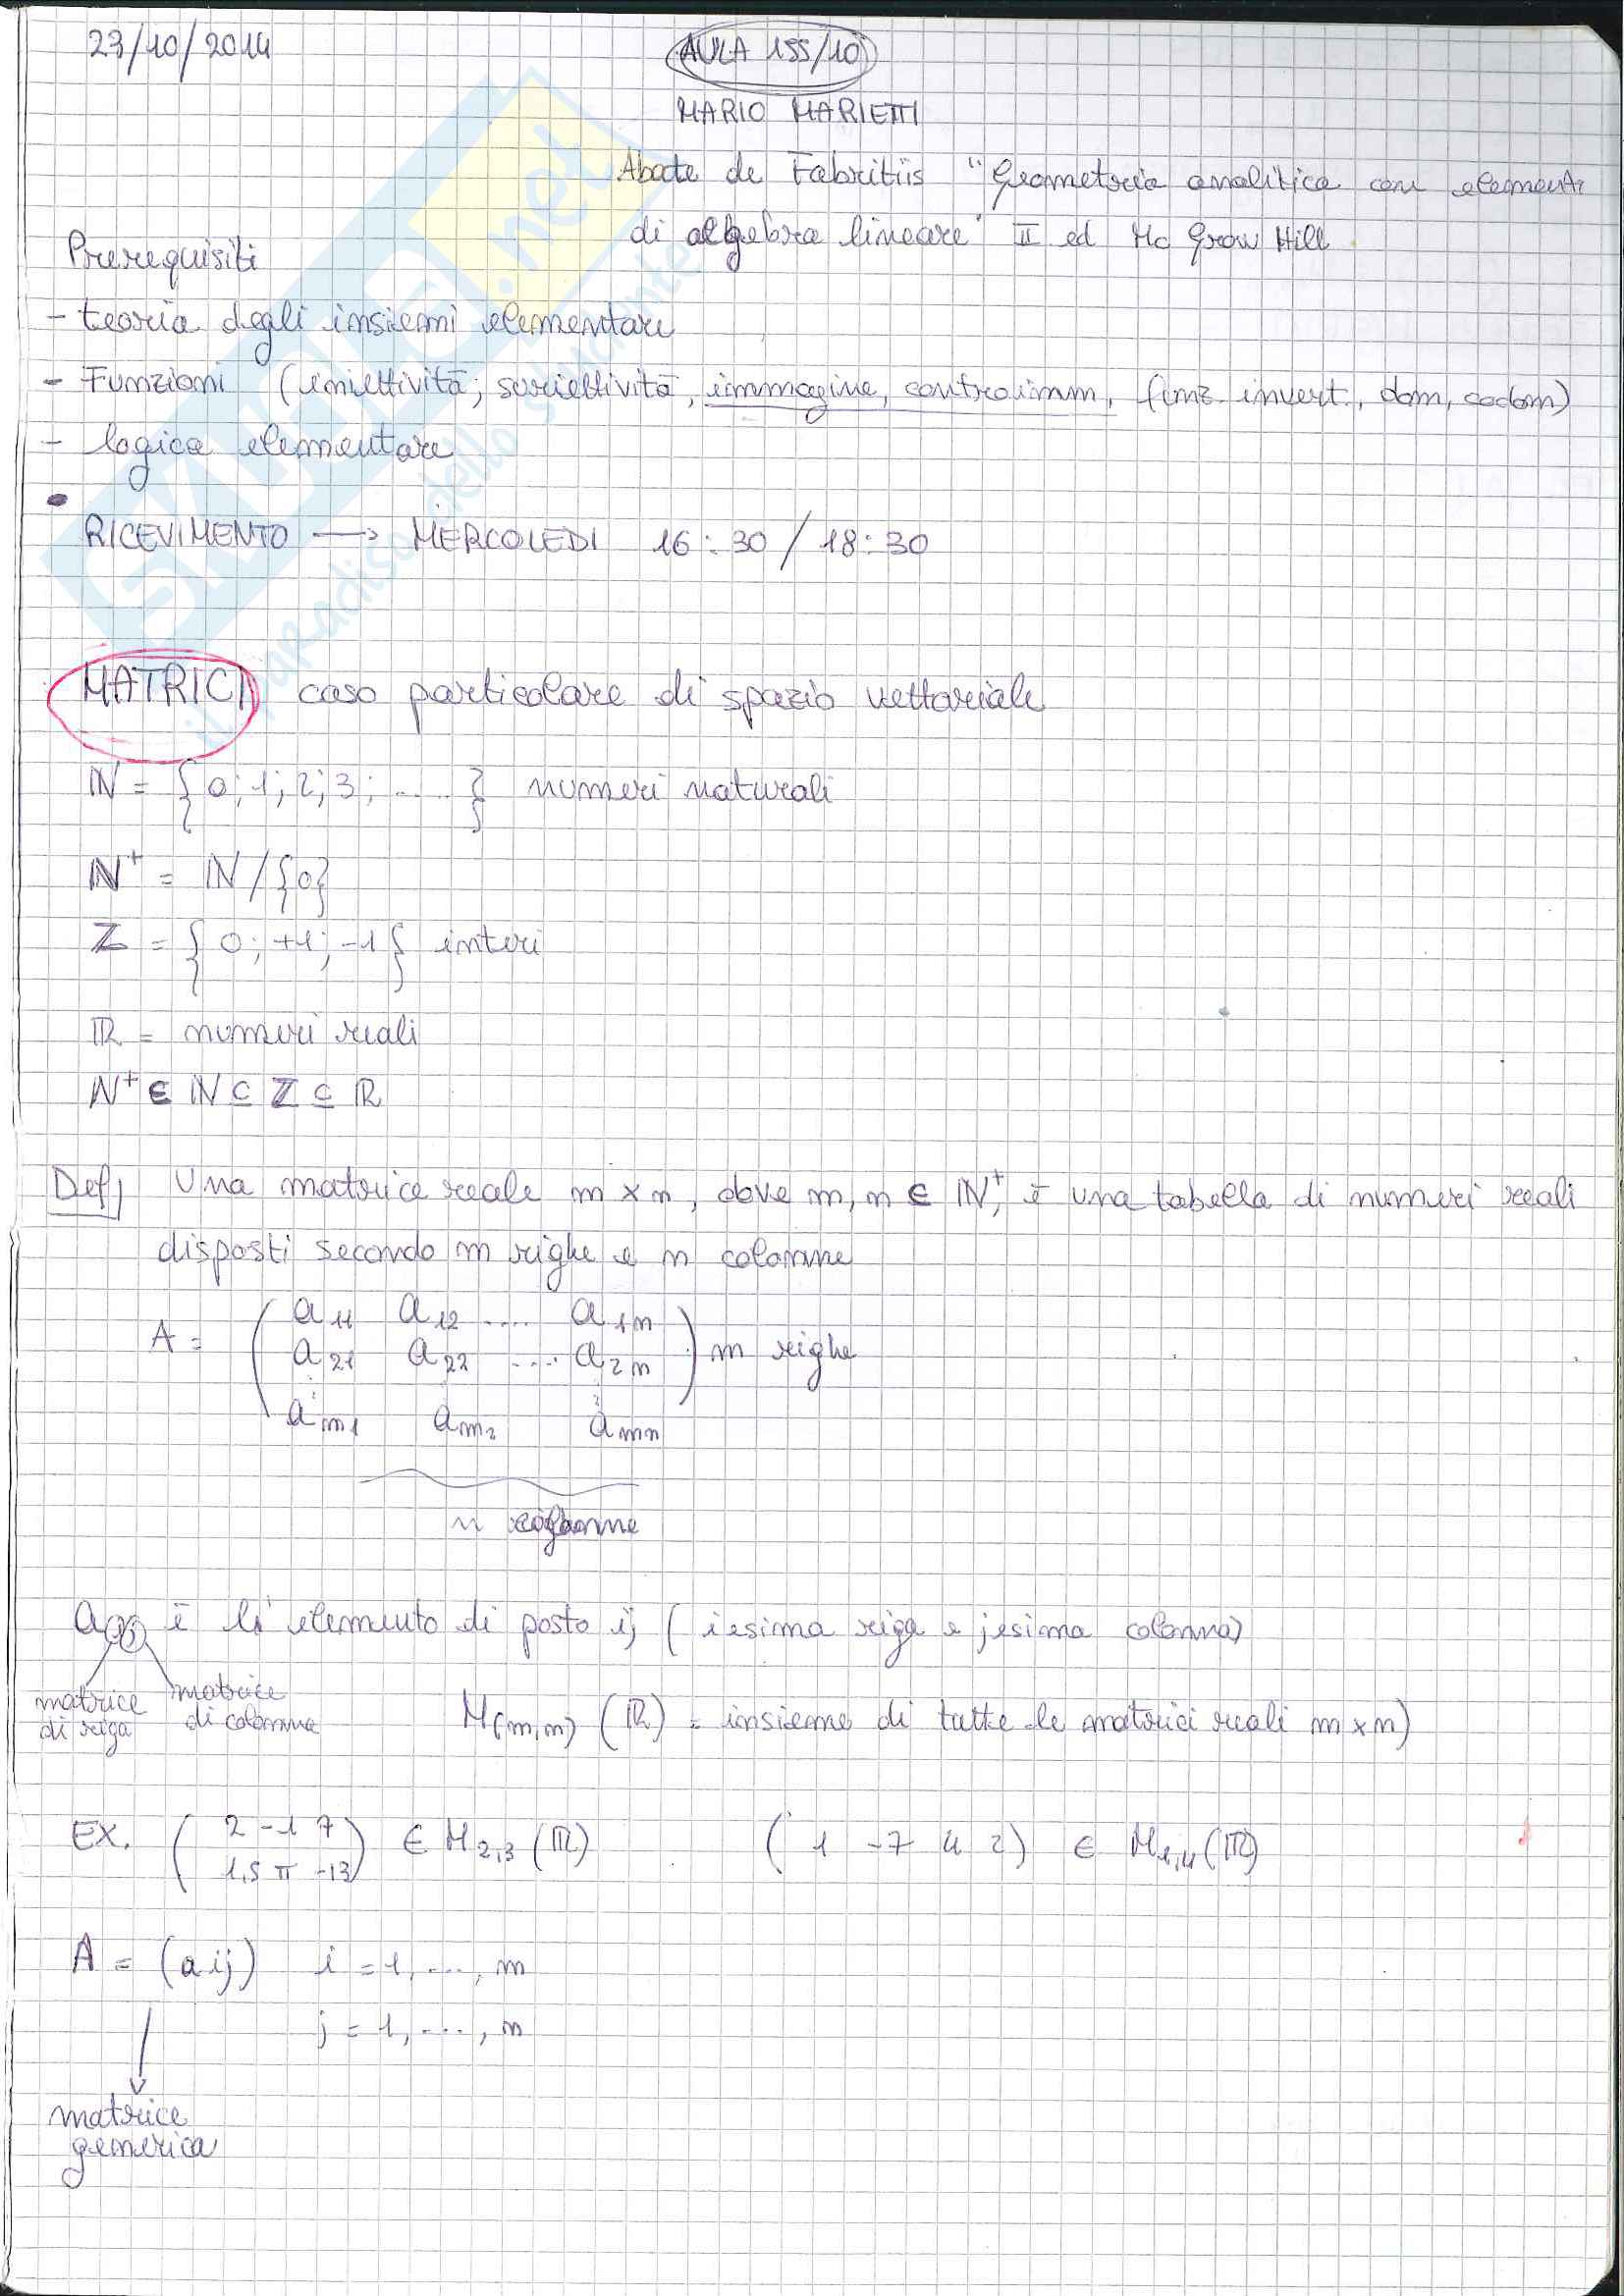 23/10/2014
AULA 155/10
MARIO MARIETTI
Abate de Fabritiis "Geometria analitica con elementi
di algebra lineare" II ed Mc Grow Hill
Prerequisiti
- teoria degli insiemi elementare
- Funzioni (iniettività, suriettività, immagine, controimm, funz. invert., dom, codom)
- logica elementare
RICEVIMENTO → MERCOLEDI 16:30 / 18:30
MATRICI caso particolare di spazio vettoriale
ℕ = { 0; 1; 2; 3; ..... } numeri naturali
ℕ⁺ = ℕ / {0}
ℤ = { 0; +1; -1 } interi
ℝ = numeri reali
ℕ⁺ ⊆ ℕ ⊆ ℤ ⊆ ℝ
Def) Una matrice reale m × n, dove m, n ∈ ℕ⁺, è una tabella di numeri reali
disposti secondo m righe e n colonne
A = ( a11 a12 .... a1n
a21 a22 .... a2n ) m righe
am1 am2 amn
n colonne
aij è l'elemento di posto ij (iesima riga e jesima colonna)
matrice di riga
matrice di colonna
M(m,n) (ℝ) = insieme di tutte le matrici reali m × n)
EX. ( 2 -1 7 ) ∈ M2,3 (ℝ) ( 1 -7 4 2 ) ∈ M1,4 (ℝ)
1,5 π -13
A = (aij) i = 1, ..., m
j = 1, ..., n
matrice
generica
SKUOLA.net
il paradiso dello studente